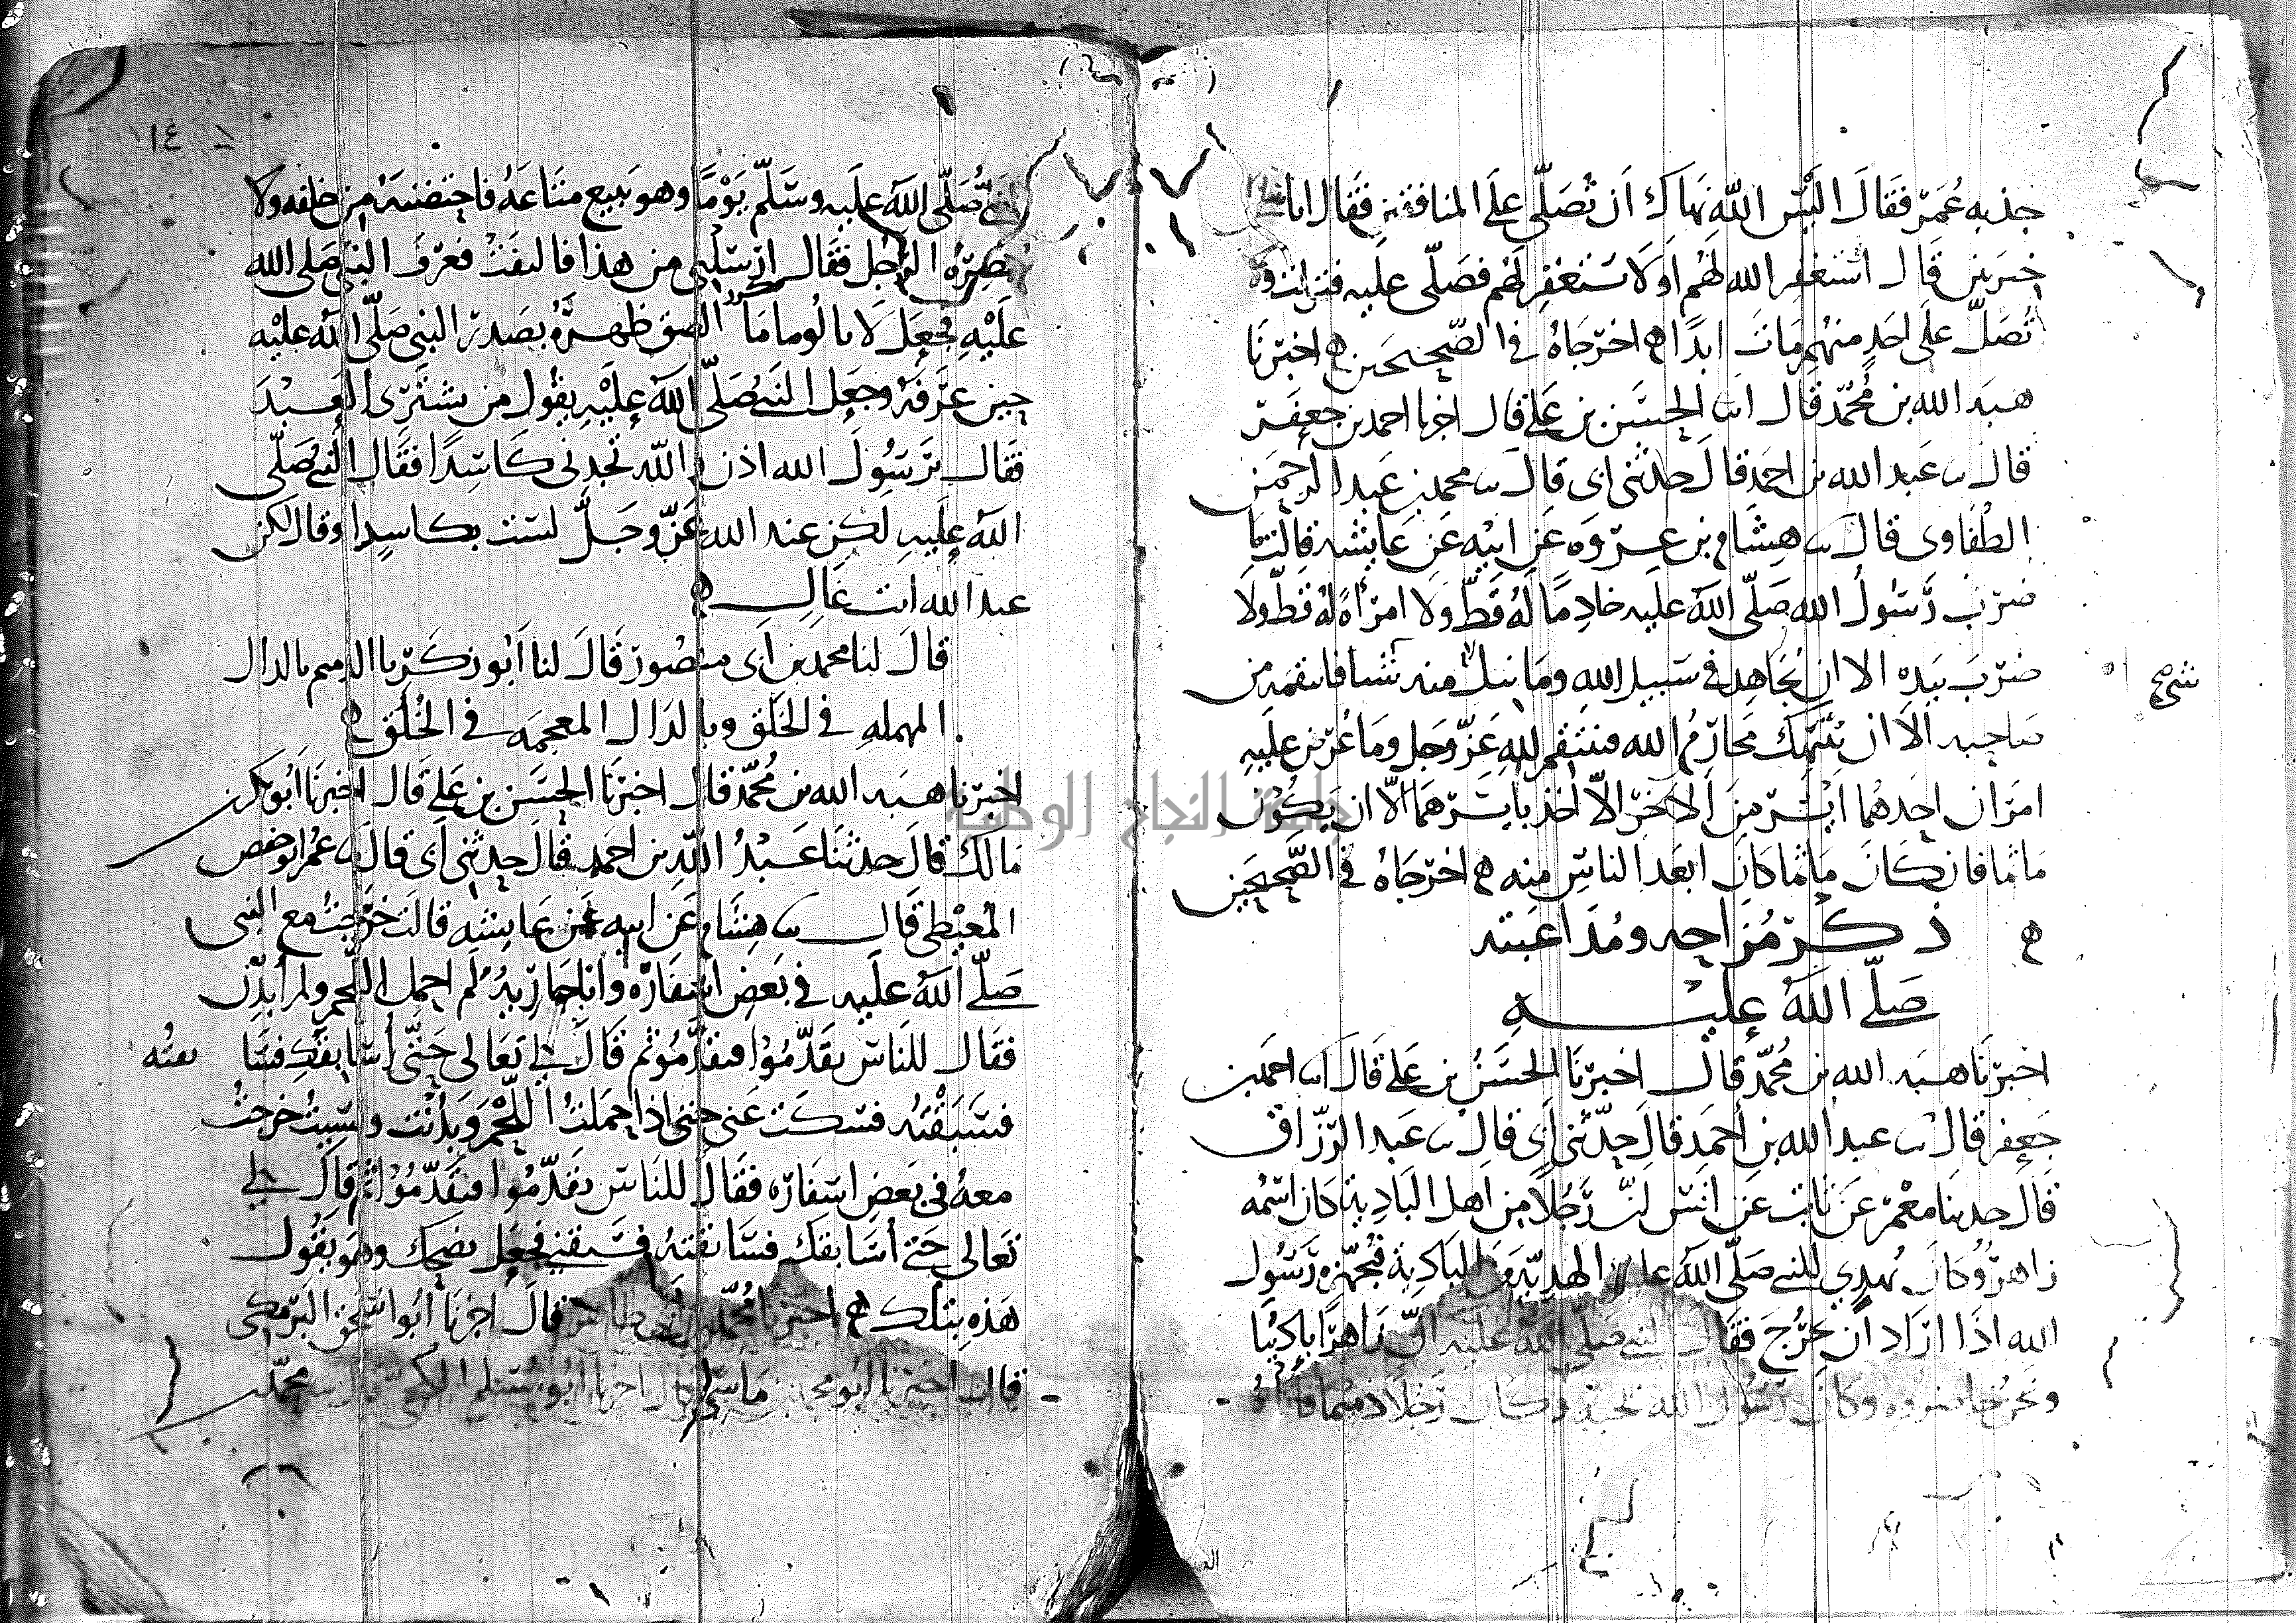 جذبه عمر فقال اليس الله نهاك ان تصلي على المنافقين فقال انا بين
خيرتين قال استغفر الله لهم او لا تستغفر لهم فصلى عليه فنزلت ولا
تصل على احد منهم مات ابدا ه اخرجاه في الصحيحين ه اخبرنا
هبة الله بن محمد قال انا الحسن بن علي قال اخبرنا احمد بن جعفر
قال نا عبد الله بن احمد قال حدثني ابي قال نا محمد بن عبد الرحمن
الطفاوي قال نا هشام بن عروة عن ابيه عن عايشه قالت ما
ضرب رسول الله صلى الله عليه خادما له قط ولا امراة له قط ولا
ضرب بيده الا ان يجاهد في سبيل الله وما نيل منه شيا فانتقمه من
شي صح
صاحبه الا ان تنتهك محارم الله فينتقم لله عز وجل وما عرض عليه
امران احدهما ايسر من الاخر الا اخذ بايسرهما الا ان يكون
ماثما فان كان ماثما كان ابعد الناس منه ه اخرجاه في الصحيحين
ه ذكر مزاحه ومداعبته
صلى الله عليه
اخبرنا هبة الله بن محمد قال اخبرنا الحسن بن علي قال انا احمد بن
جعفر قال نا عبد الله بن احمد قال حدثني ابي قال نا عبد الرزاق
قال حدثنا معمر عن ثابت عن انس ان رجلا من اهل البادية كان اسمه
زاهر وكان يهدي للنبي صلى الله عليه الهدية من البادية فيجهزه رسول
الله اذا اراد ان يخرج فقال النبي صلى الله عليه ان زاهرا باديتنا
ونحن حاضروه وكان رسول الله يحبه وكان رجلا دميما فاتاه
١٤
النبي صلى الله عليه وسلم يوما وهو يبيع متاعه فاحتضنه من خلفه ولا
يبصره الرجل فقال ارسلني من هذا فالتفت فعرف النبي صلى الله
عليه فجعل لا يالو ما الصق ظهره بصدر النبي صلى الله عليه
حين عرفه وجعل النبي صلى الله عليه يقول من يشتري العبد
فقال يرسول الله اذن والله تجدني كاسدا فقال النبي صلى
الله عليه لكن عند الله عز وجل لست بكاسد او قال لكن
عند الله انت غال ه
قال لنا محمد بن ابي منصور قال لنا ابو زكريا الدميم بالدال
المهمله في الخلق وبالدال المعجمه في الخلق ه
اخبرنا هبة الله بن محمد قال اخبرنا الحسن بن علي قال اخبرنا ابو بكر بن
مالك قال حدثنا عبد الله بن احمد قال حدثني ابي قال نا عمر ابو حفص
المعيطي قال نا هشام عن ابيه عن عايشه قالت خرجت مع النبي
صلى الله عليه في بعض اسفاره وانا جارية لم احمل اللحم ولم ابدن
فقال للناس تقدموا فتقدموا ثم قال لي تعالي حتى اسابقك فسابقته
فسبقته فسكت عني حتى اذا حملت اللحم وبدنت ونسيت خرجت
معه في بعض اسفاره فقال للناس تقدموا فتقدموا ثم قال لي
تعالي حتى اسابقك فسابقته فسبقني فجعل يضحك وهو يقول
هذه بتلك ه اخبرنا محمد بن ابي طاهر قال اخبرنا ابو اسحق البرمكي
قال اخبرنا ابو محمد بن ماسي قال اخبرنا ابو مسلم الكجي قال نا محمد بن
جامعة النجاح الوطنية